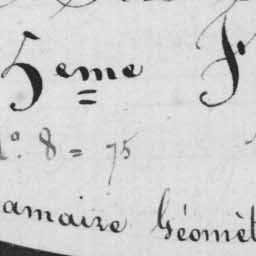 5eme F
N°. 8 = 75
amaire Géomèt